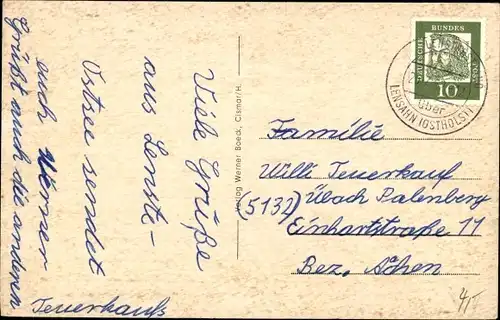 Viele Grüße
aus Lenste-
Ostsee sendet
euch Werner
Grüßt auch die anderen
Teuerkaufs
Verlag Werner Boeck, Cismar/H.
DEUTSCHE
BUNDESPOST
10
über
LENSAHN (OSTHOLST)
Familie
Willi Teuerkauf
(5132) Übach Palenberg
Einhartstraße 11
Bez. Achen